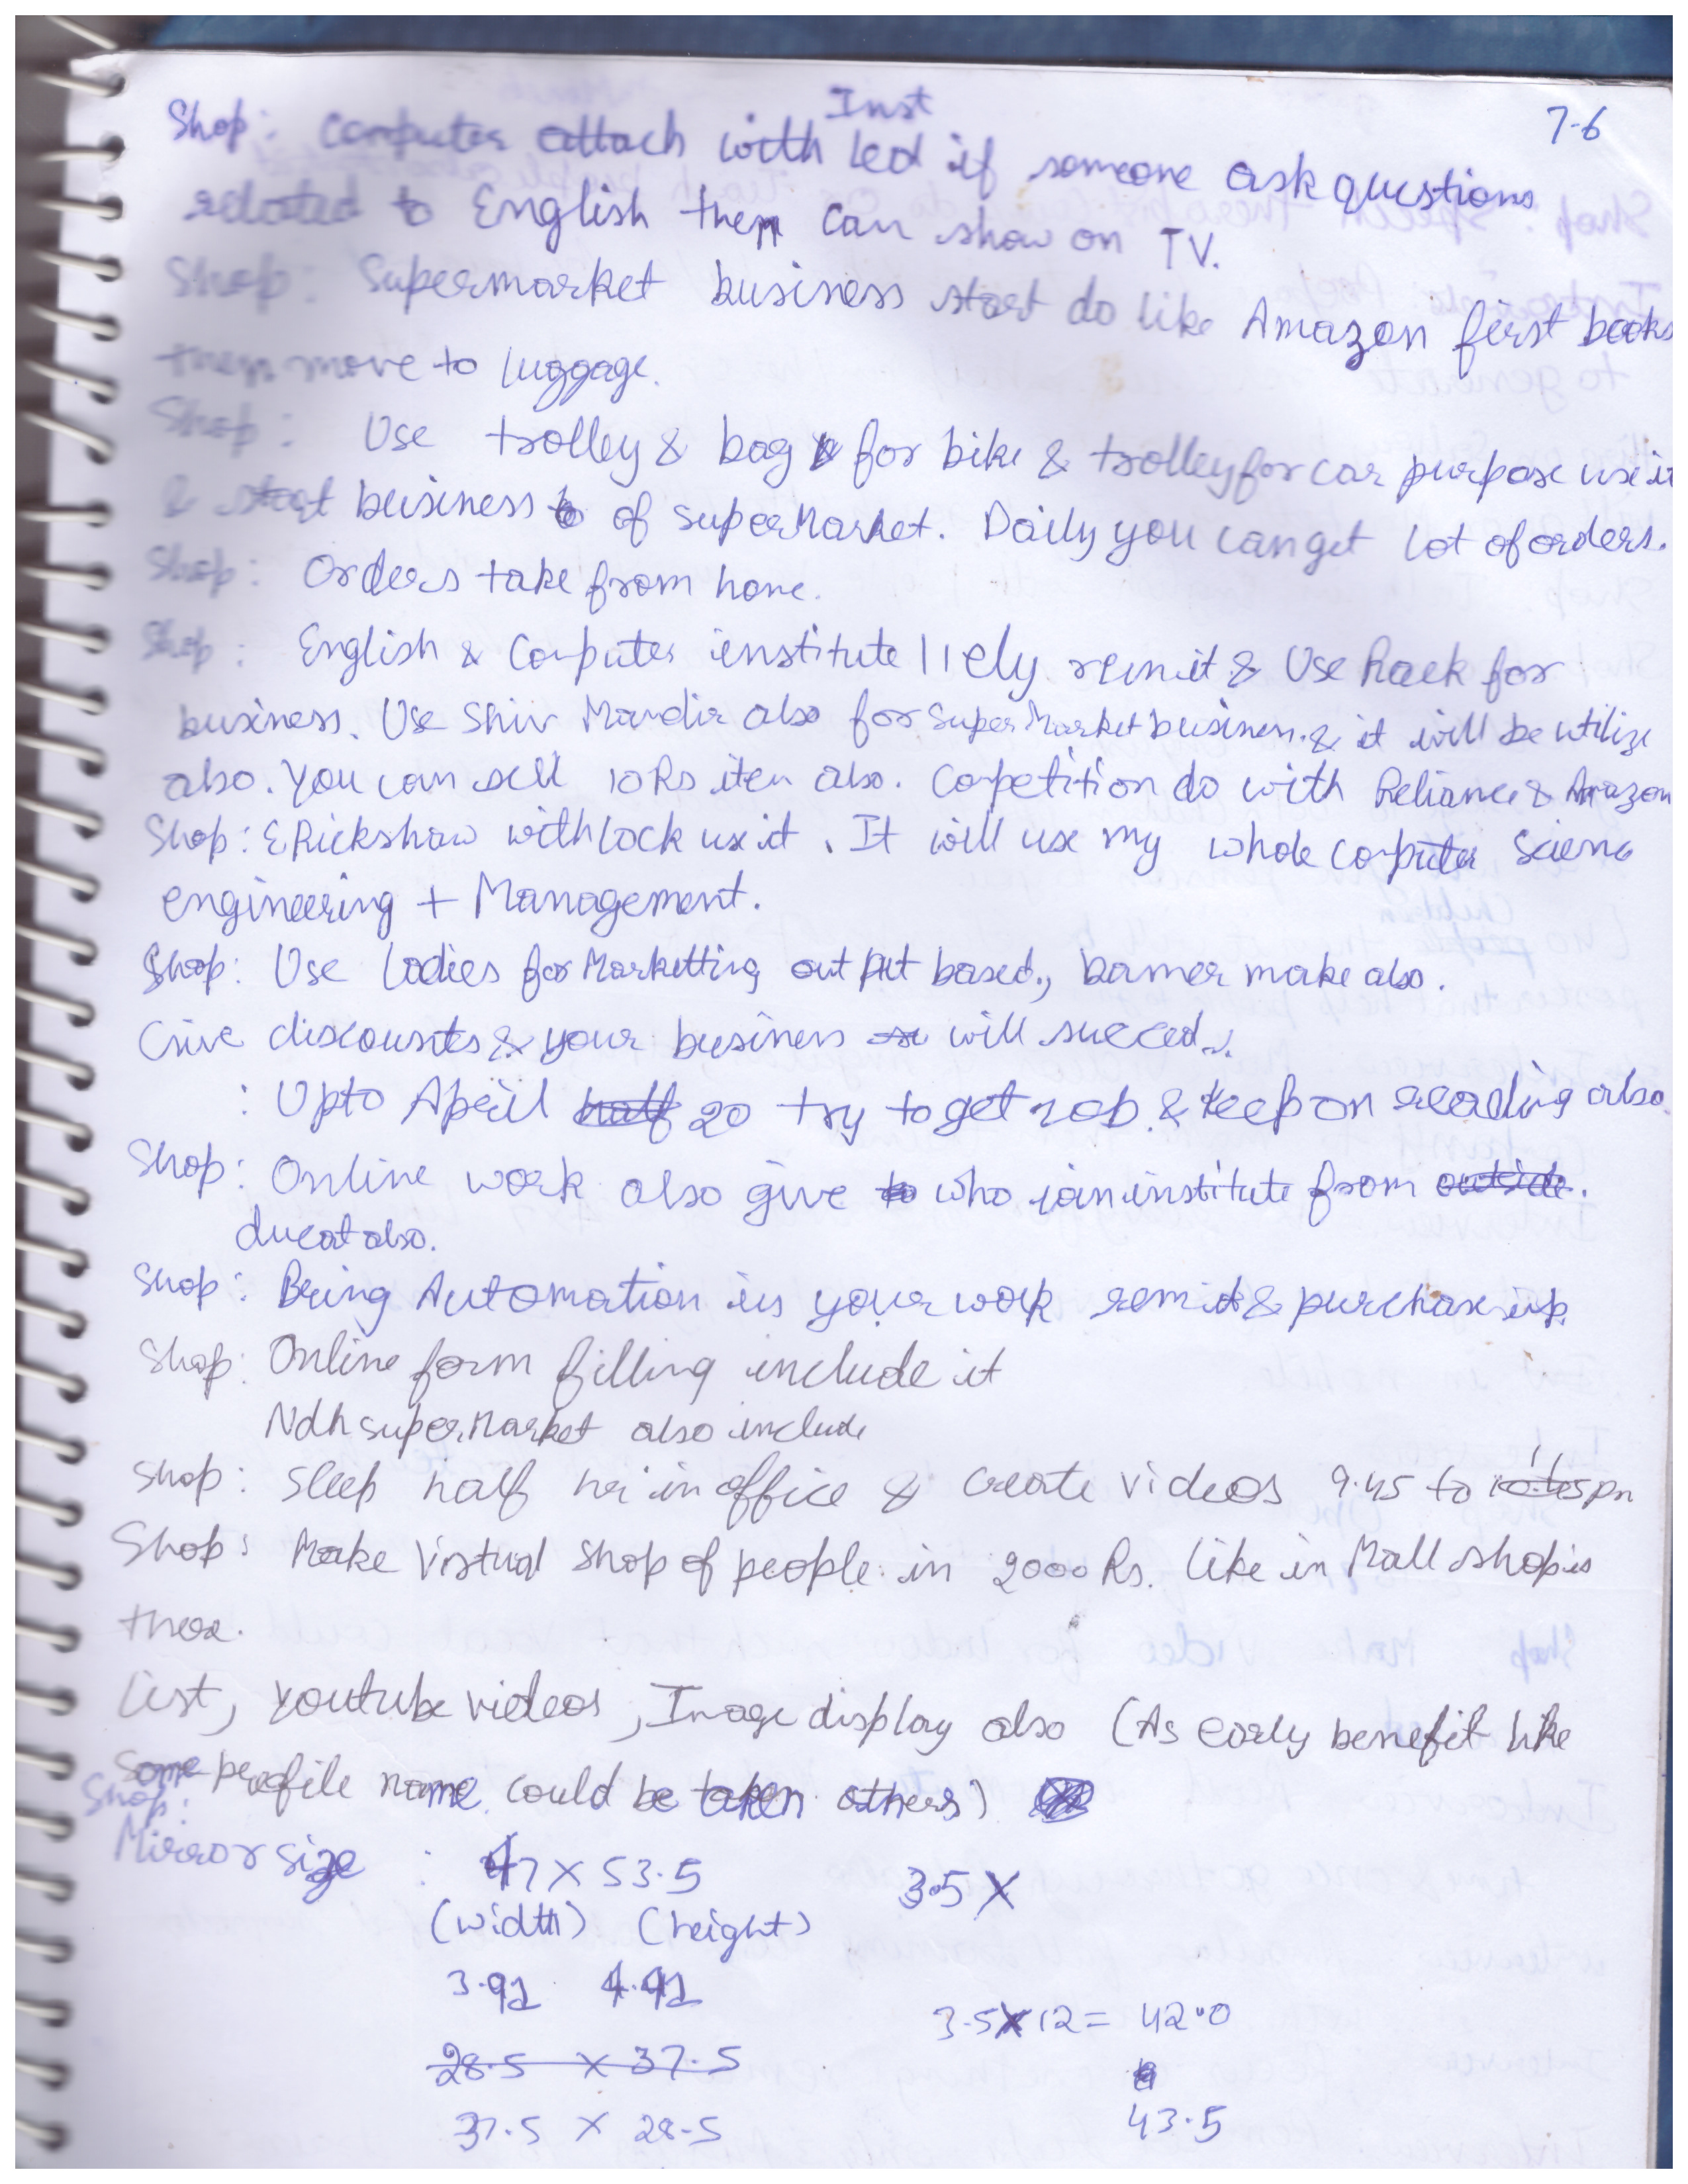 7-6
Inst
Shop: Computer attach with Led if someone ask questions
related to English then can show on TV.
Shop: Supermarket business start do like Amazon first books
then move to luggage.
Shop: Use trolley & bag for bike & trolley for car purpose use it
& start business of superMarket. Daily you can get lot of orders.
Shop: Orders take from home.
Shop: English & Computer institute run it & Use Rack for
business. Use Shiv Mandir also for superMarket business. & it will be utilize
also. You can sell 10 Rs item also. Competition do with Reliance & Amazon
Shop: ERickshaw with lock use it. It will use my whole computer Science
engineering + Management.
Shop: Use ladies for Marketting output based, banner make also.
Give discounts & your business will succed.
: Upto April half 20 try to get job. & keep on reading also.
Shop: Online work also give to who join institute from outside.
ducat also.
Shop: Bring Automation in your work & purchase
Shop: Online form filling include it
Ndh superMarket also include
Shop: Sleep half hr in office & Create videos 9.45 to pm
Shop: Make Virtual Shop of people in 2000 Rs. like in Mall shop is
there.
List, youtube videos, Image display also (As early benefit like
Some profile name could be taken others)
Shop:
Mirror size : 47 X 53.5 3.5 X
(width) (height)
3.91 4.41
3.5X12 = 42.0
28.5 X 37.5
37.5 X 28.5 43.5